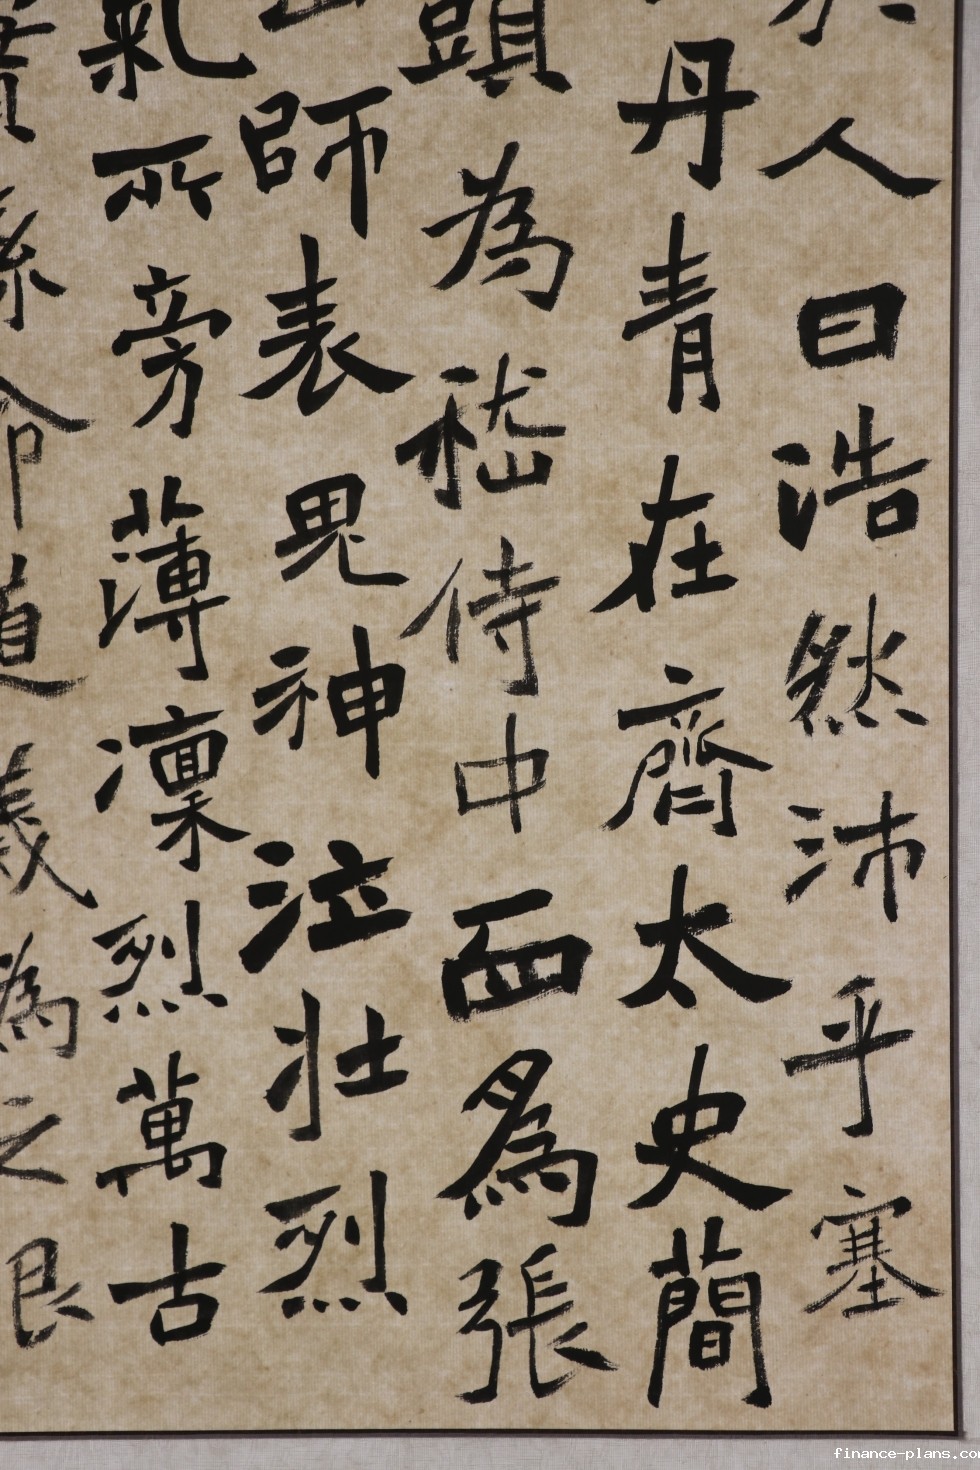 人曰浩然沛乎塞
丹青在齊太史簡
頭為嵇侍中血爲張
師表鬼神泣壯烈
氣所旁薄凜烈萬古
係命道義為之根